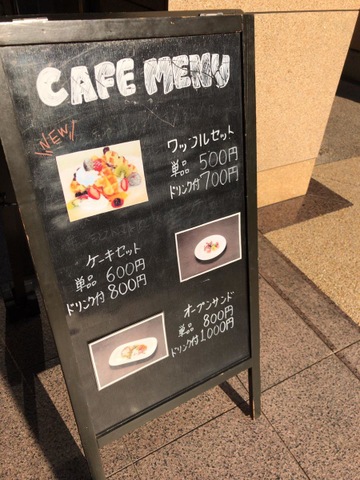 CAFE MENU
NEW
ワッフルセット
単品 500円
ドリンク付 700円
ケーキセット
単品 600円
ドリンク付 800円
オープンサンド
単品 800円
ドリンク付 1000円